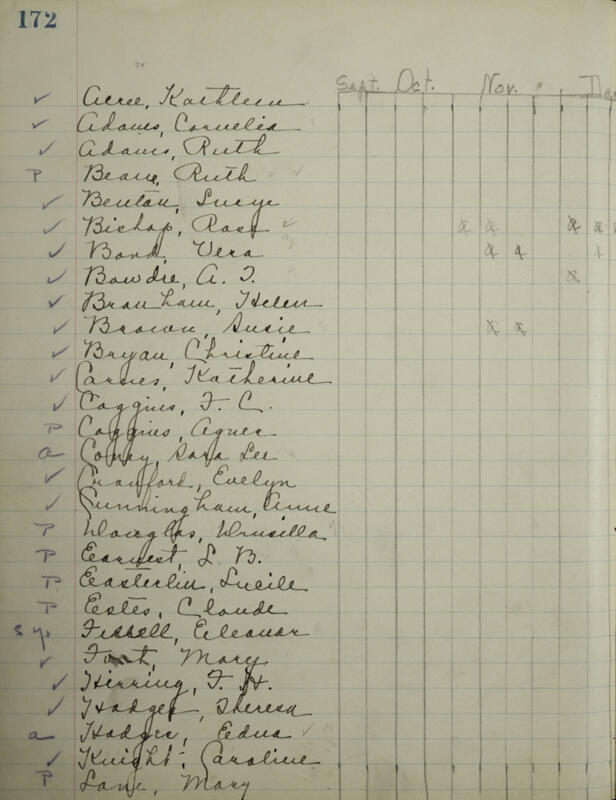 172
Sept. Oct. Nov. Dec
✓ Acree, Kathleen
✓ Adams, Cornelia
✓ Adams, Ruth
P Beane, Ruth
✓ Benton, Lucye
✓ Bishop, Rose
✓ Bond, Vera
✓ Bowdre, A. T.
✓ Branham, Helen
✓ Brown, Susie
✓ Bryan, Christine
✓ Carnes, Katherine
✓ Coggins, F. C.
P Coggins, Agnes
a Coney, Sara Lee
✓ Crawford, Evelyn
✓ Cunningham, Anne
P Douglas, Drusilla
P Earnest, L. B.
P Easterlin, Lucile
P Estes, Claude
Eleanor
✓ Fort, Mary
✓ Herring, F. H.
✓ Hodges, Theresa
a Hodges, Edna
✓ Knight, Caroline
P Lane, Mary